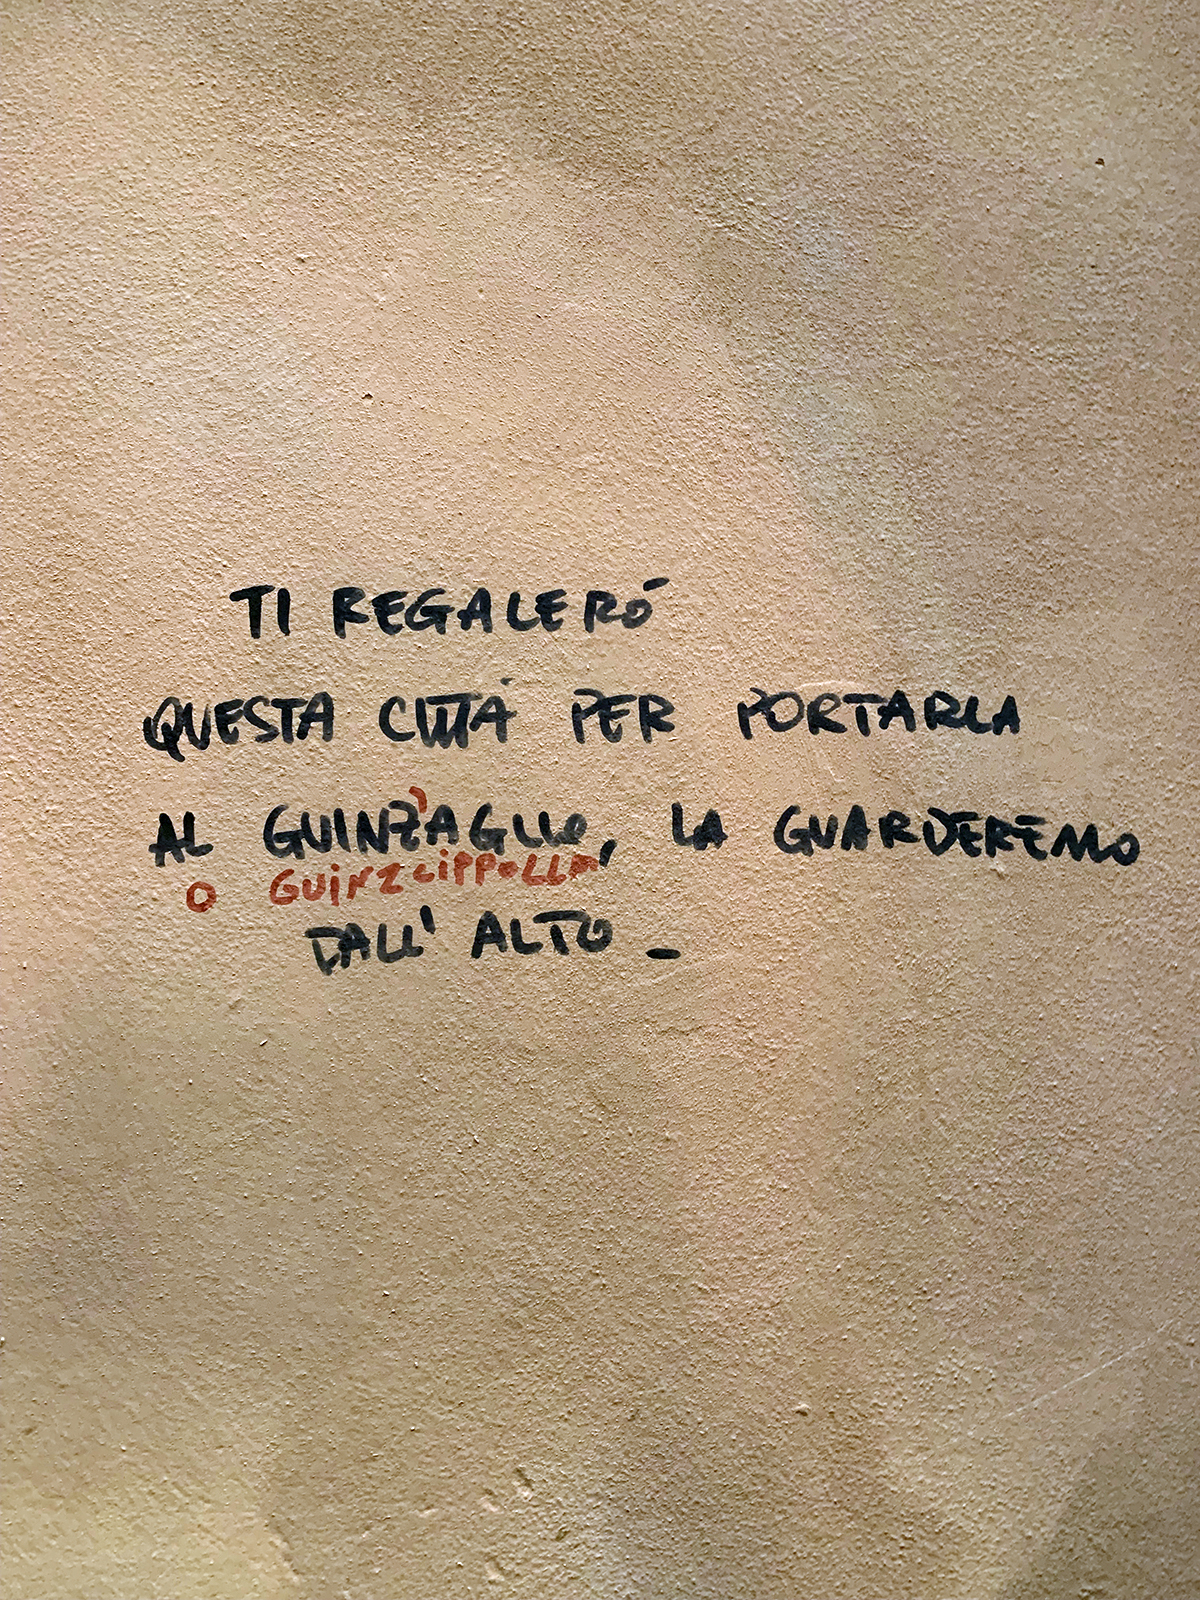 TI REGALERÓ
QUESTA CITTÁ PER PORTARLA
AL GUINZ'AGLIO, LA GUARDEREMO
O GUINZCIPPOLLA
DALL' ALTO _